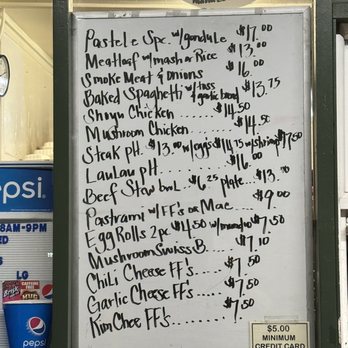 Pastele Spc. w/gandule $17.00
Meatloaf w/mash or Rice $13.00
Smoke Meat & Onions $16.00
Baked Spaghetti w/toss & garlic bread $13.75
Shoyu Chicken.......$14.50
Mushroom Chicken....$14.50
Steak pH. $13.00 w/eggs $14.75 w/shrimp $17.50
Laulau pH..........$16.00
Beef Stew bwl. $6.25 plate...$13.00
Pastrami w/FF's or Mac....$9.00
Egg Rolls 2pc $4.50 $7.50
Mushroom Swiss B. .....$7.10
Chili Cheese FF's.....$7.50
Garlic Cheese FF's....$7.50
Kim Chee FF's........$7.50
pepsi
8AM-9PM
ED
US LG
pepsi
$5.00
MINIMUM
CREDIT CARD